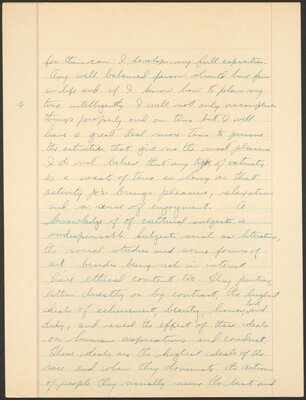 for then can I develop my full capacities.
Any well balanced person should have fun
in life and if I know how to plan my
time intelligently I will not only accomplish
things properly and on time but I will
have a great deal more time to pursue
the activities that give me the most pleasure.
I do not believe that any type of activity
is a waste of time as long as that
activity brings pleasure, relaxation
and a sense of enjoyment. A
knowledge of of cultural subjects is
indispensable. Subjects such as literature,
the social studies and some forms of
art besides being rich in interest
have ethical content too. They portray,
either directly or by contrast, the highest
ideals of achievement, beauty, honor, and
duty, and reveal the effect of these ideals
on human aspirations and conduct.
These ideals are the highest ideals of the
race and when they dominate the actions
of people they usually mean the best and